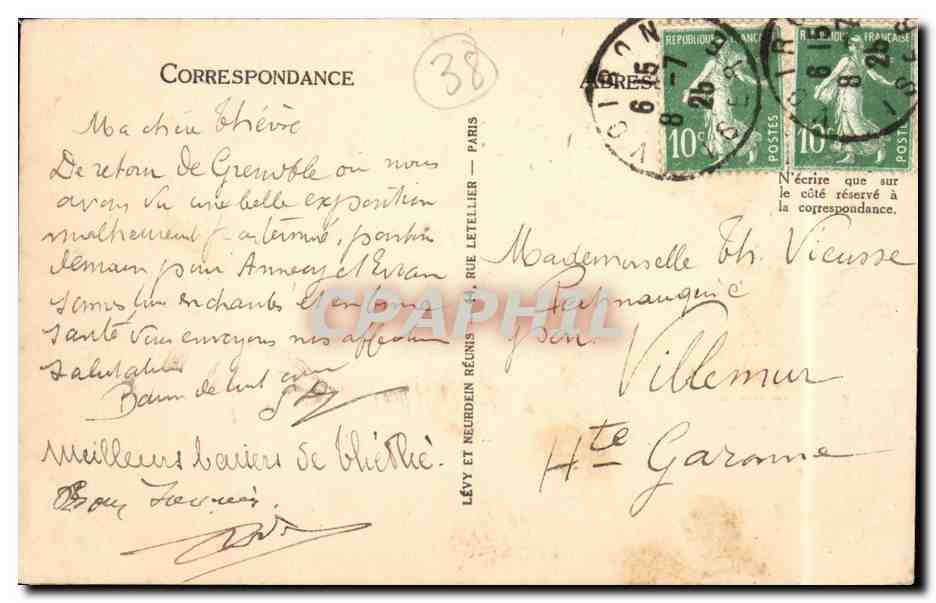 CORRESPONDANCE
38
Ma chère Thérèse
De retour de Grenoble où nous
avons vu une belle exposition
malheureusement terminé, partir
demain pour Annecy et Evian
sommes tous enchantés et en bonne
santé vous envoyons nos affectueuses
salutations
Meilleurs baisers de
LÉVY ET NEURDEIN RÉUNIS, RUE LETELLIER - PARIS
ADRESSE
REPUBLIQUE FRANÇAISE
10c POSTES
REPUBLIQUE FRANÇAISE
10c POSTES
VOIRON
6 15
8 -7
26
ISÈRE
N'écrire que sur
le côté réservé à
la correspondance.
Mademoiselle Th. Vieusse
par
Villemur
Hte Garonne
CPARPHIL